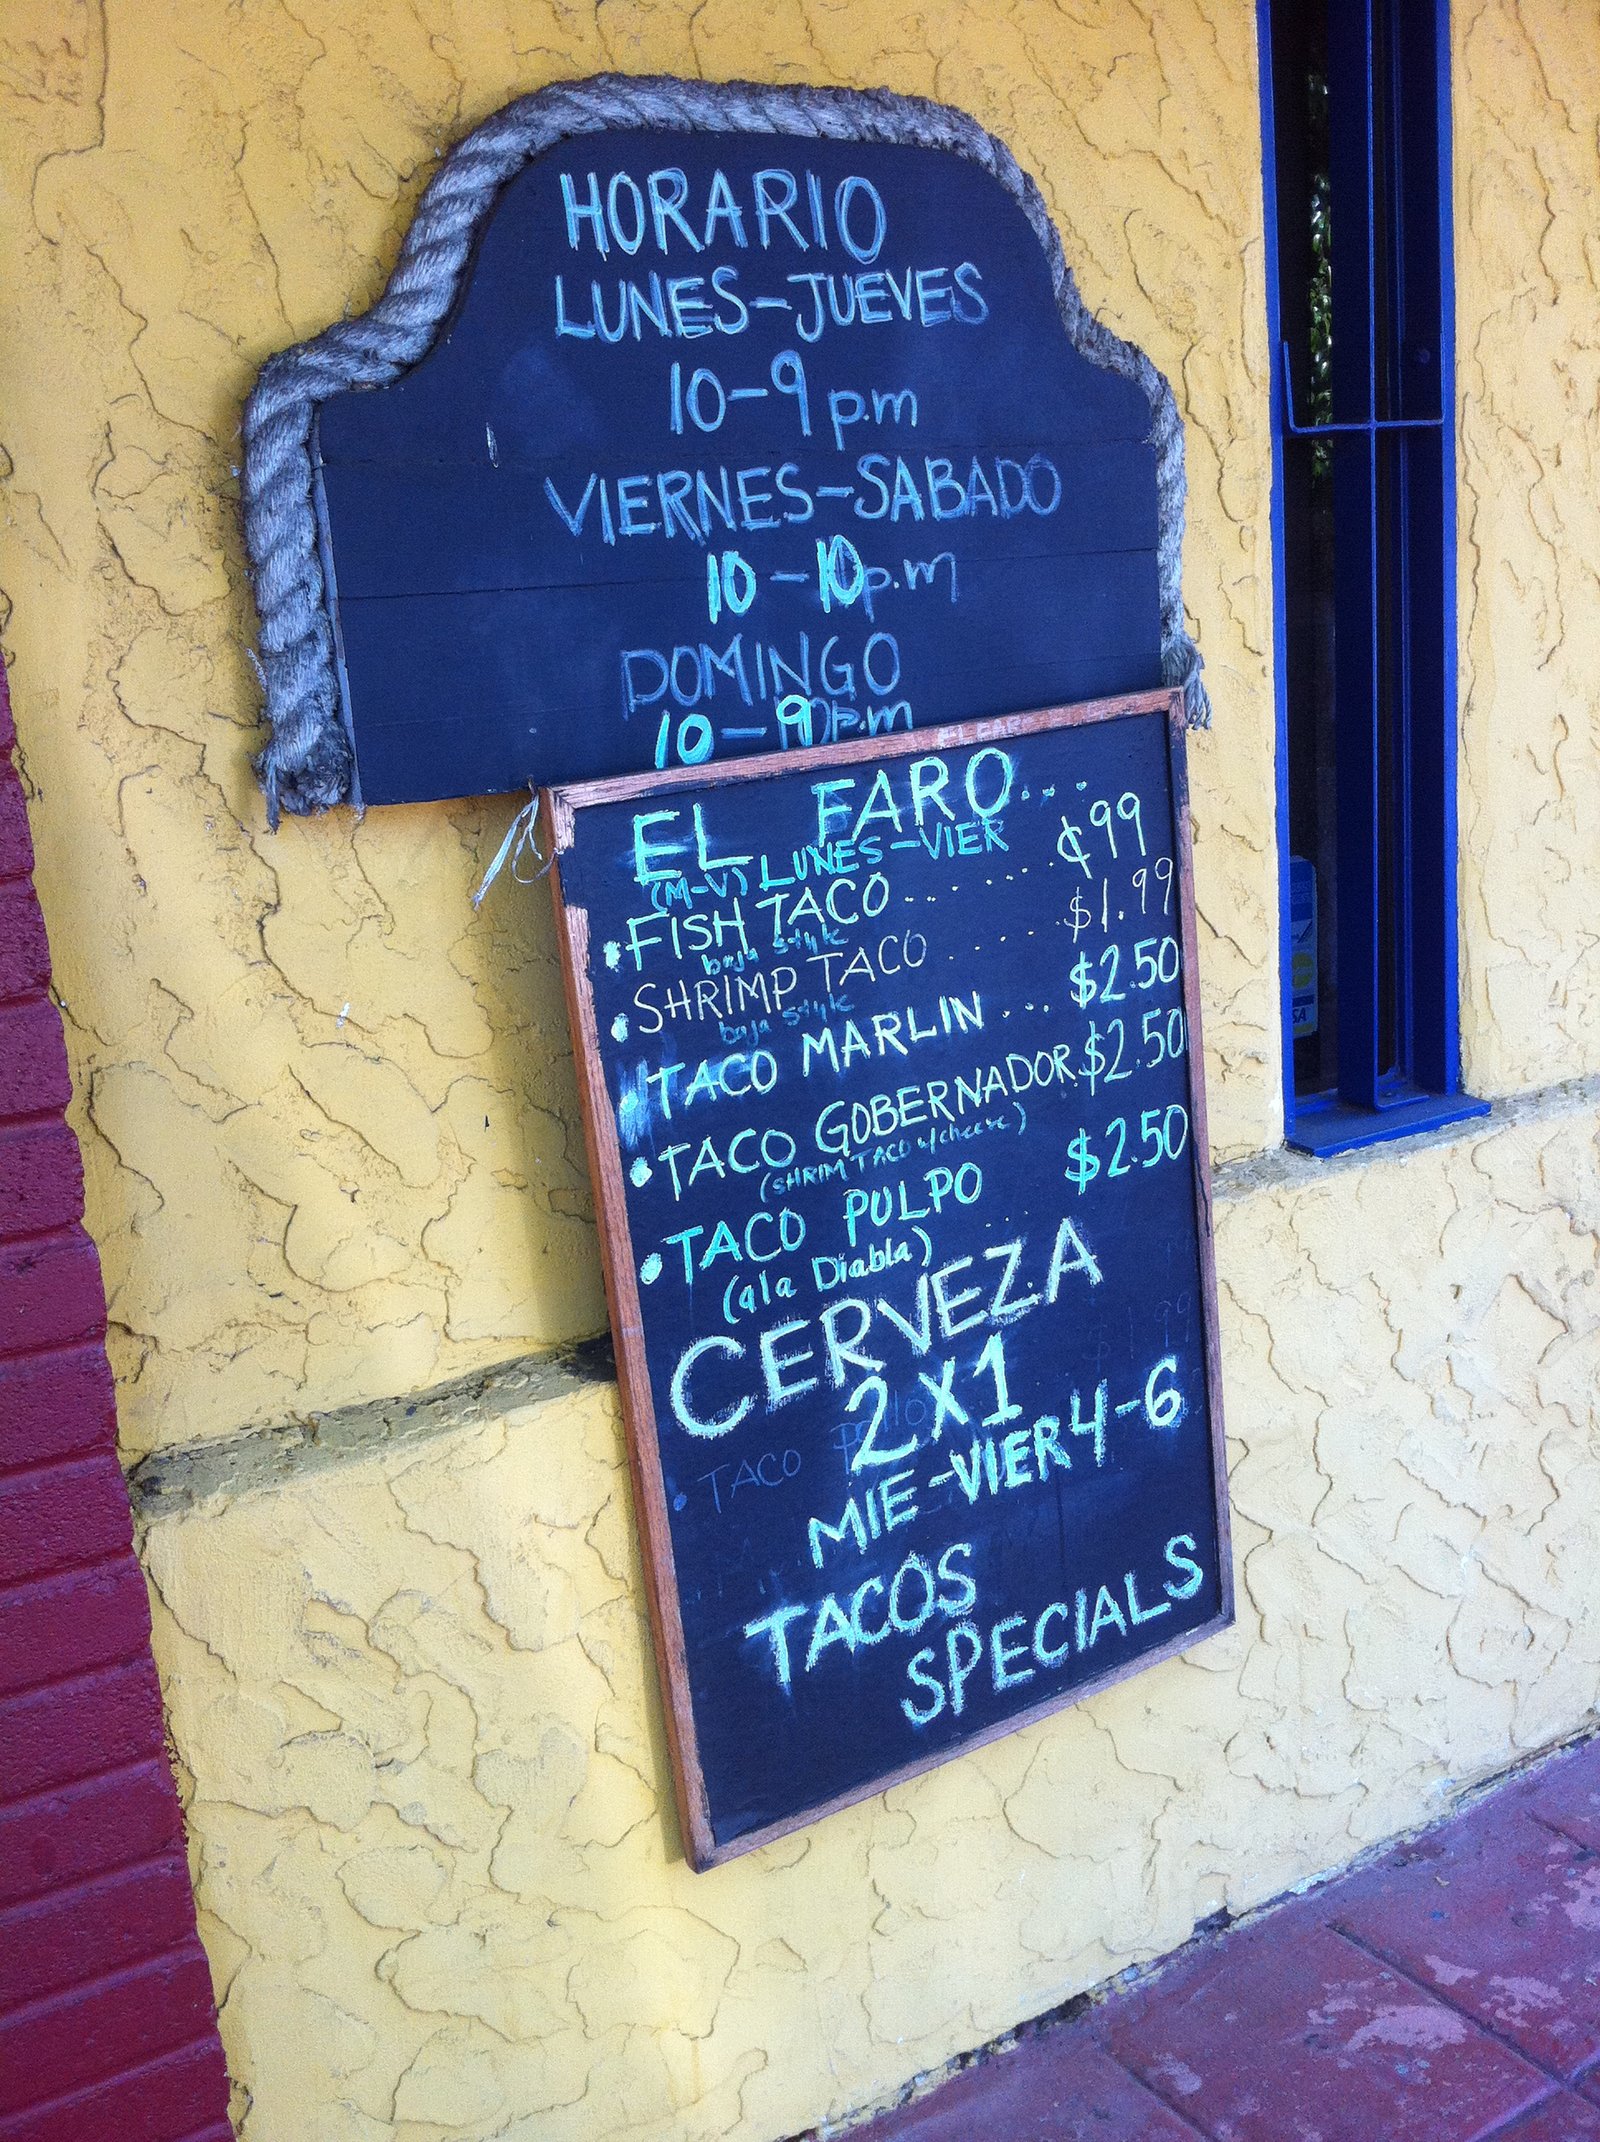 HORARIO
LUNES-JUEVES
10-9 p.m
VIERNES-SABADO
10-10p.m
DOMINGO
10-9 p.m
EL FARO...
(M-V) LUNES-VIER
• FISH TACO ........ ¢99
baja style
• SHRIMP TACO ..... $1.99
baja style
• TACO MARLIN ... $2.50
• TACO GOBERNADOR. $2.50
(SHRIM TACO w/cheese)
• TACO PULPO ... $2.50
(a la Diabla)
CERVEZA
2X1
MIE-VIER 4-6
• TACO
TACOS
SPECIALS